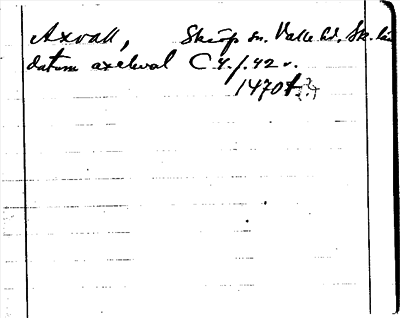 Axvall, Skärp sn. Valle hd. Sk. län
datum axelwal C.4. f. 42 v.
1470 t.